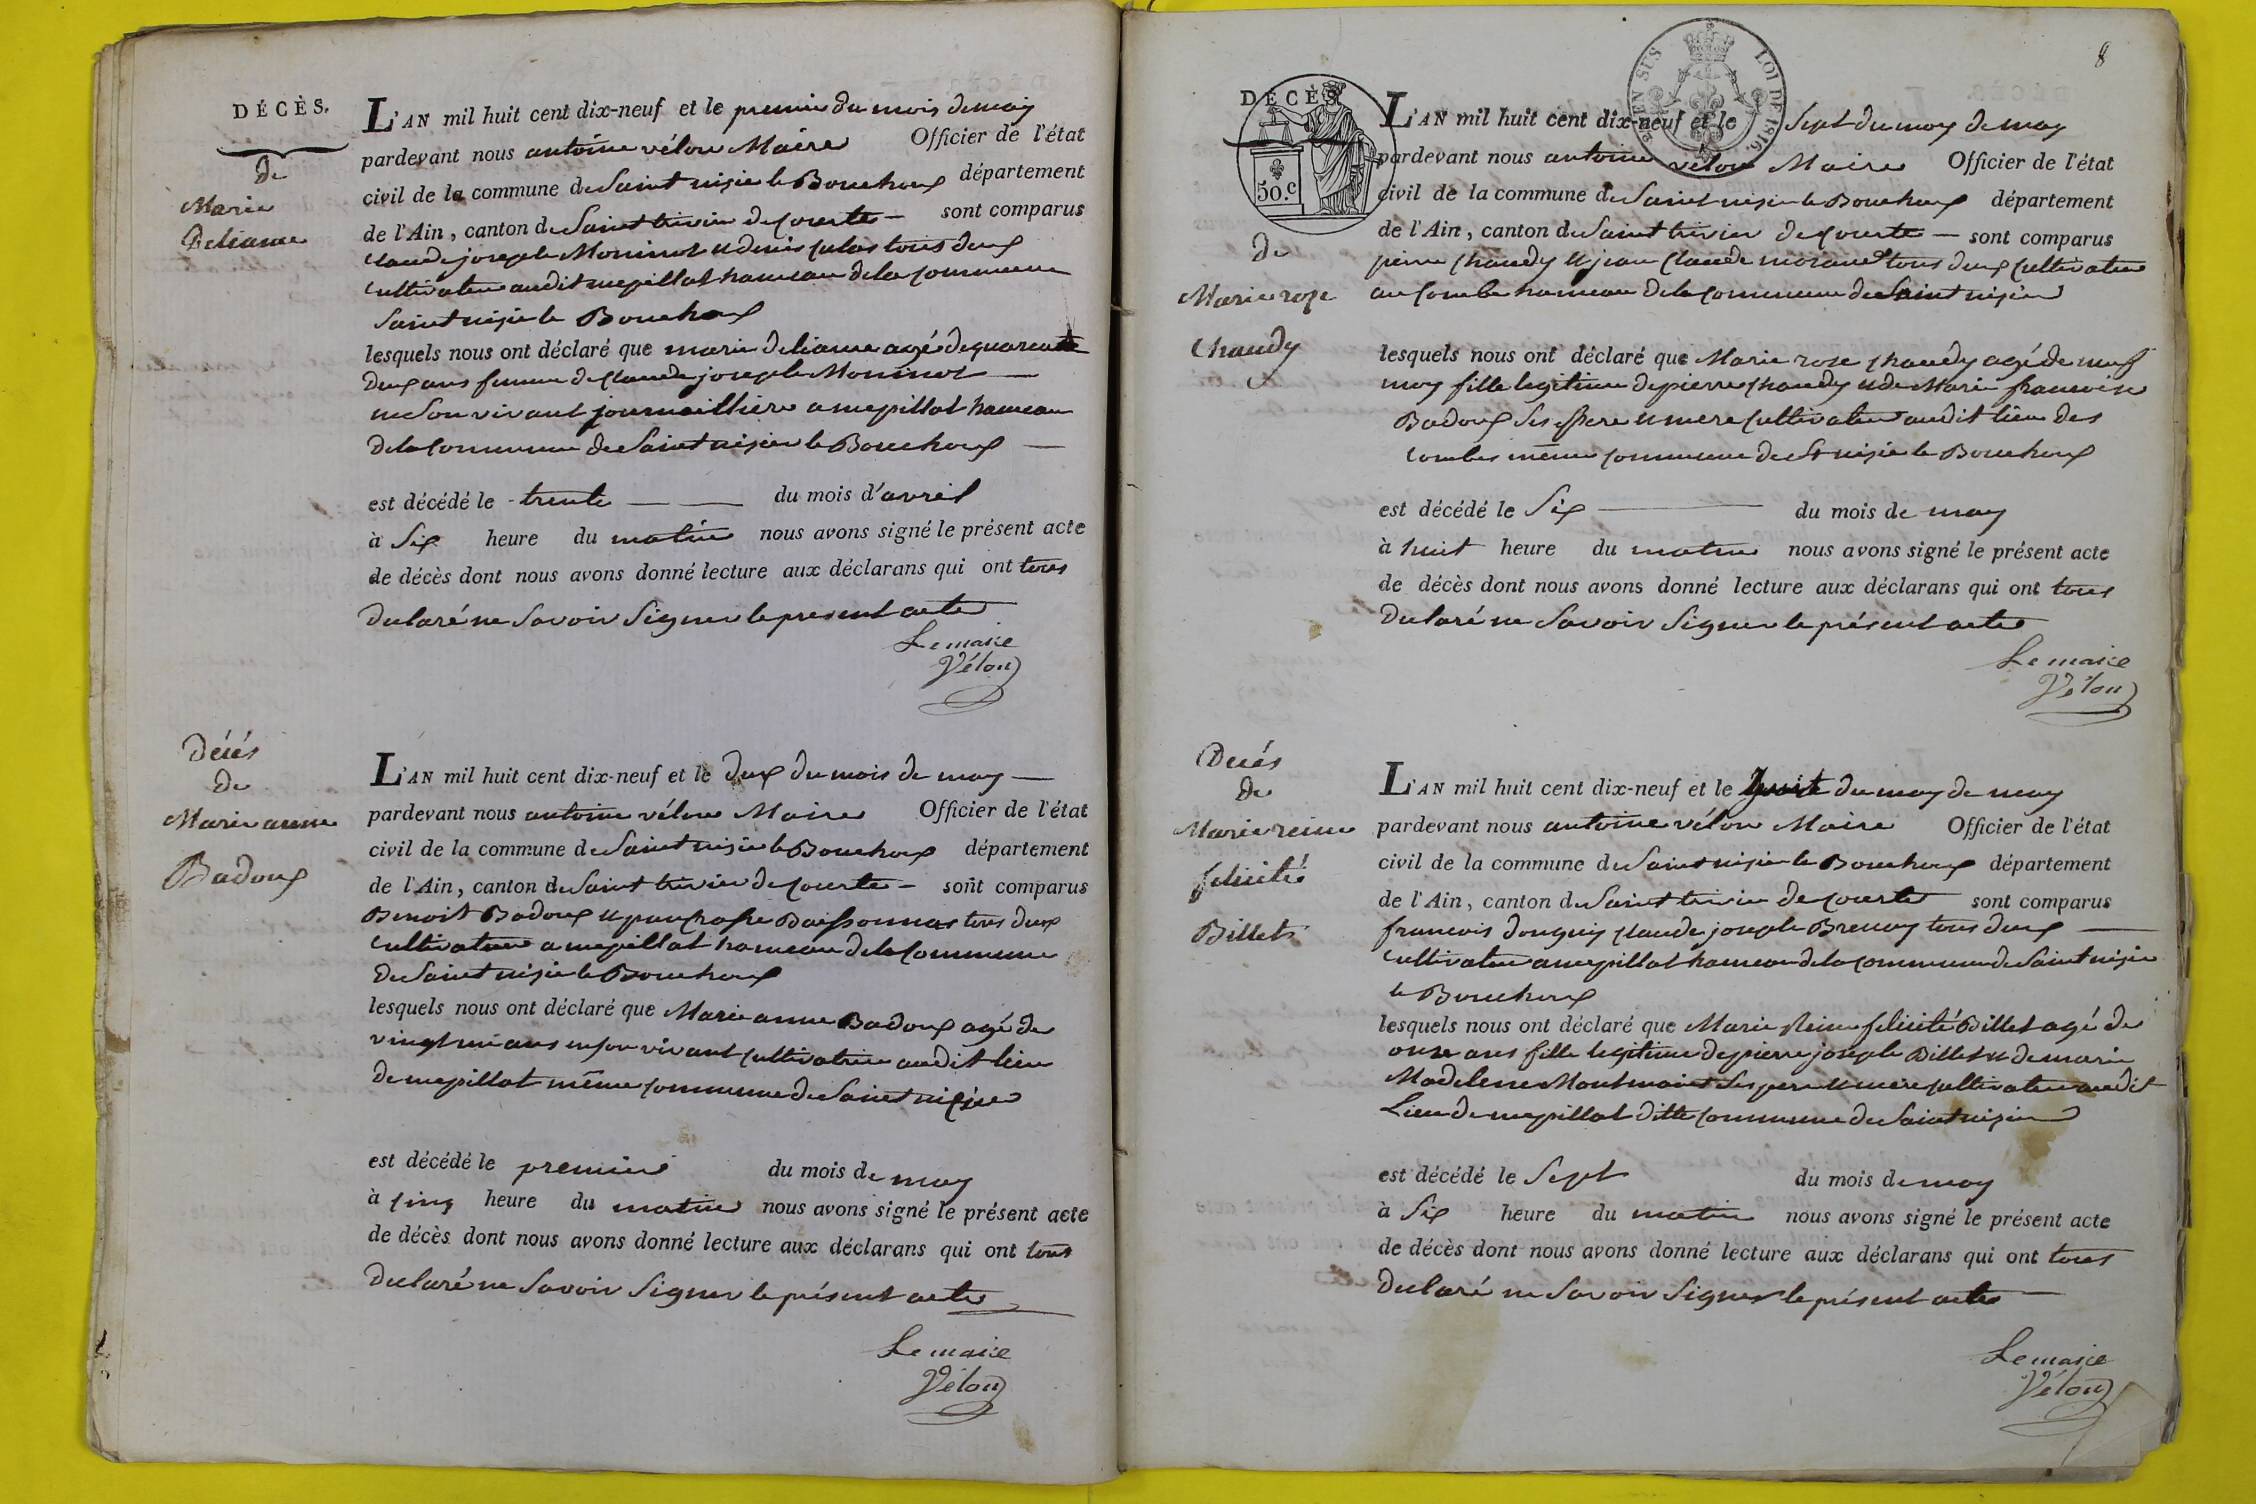 DÉCÈS.
de
Marie
Deliance
L'AN mil huit cent dix-neuf et le premier du mois de may
pardevant nous antoine vélon Maire Officier de l'état
civil de la commune de Saint nisier le Bouchoux département
de l'Ain, canton de Saint trivier de Courte — sont comparus
Claude joseph Moninot et denis tous deux
cultivateur audit mepillat hameau dela commune
Saint nisie le Bouchoux
lesquels nous ont déclaré que marie deliance agé de quarente
deux ans femme de Claude joseph Moninot —
en Son vivant journailliere a mepillat hameau
dela commune de Saint nisier le Bouchoux —
est décédé le trente — — du mois d'avril
à Six heure du matin nous avons signé le présent acte
de décès dont nous avons donné lecture aux déclarans qui ont tous
declaré ne Savoir Signer le present acte
Le maire
Vélon
Décés
de
Marie anne
Badoux
L'AN mil huit cent dix-neuf et le deux du mois de may —
pardevant nous antoine vélon Maire Officier de l'état
civil de la commune de Saint nisie le Bouchoux département
de l'Ain, canton de Saint trivier de Courte — sont comparus
Benoit Badoux et tous deux
cultivateur a mepillat hameau dela Commune
de Saint nisie le Bouchoux
lesquels nous ont déclaré que Marie anne Badoux agé de
vingt un ans en son vivant cultivatrice audit lieu
de mepillat même commune de Saint nisier
est décédé le premier du mois de may
à cinq heure du matin nous avons signé le présent acte
de décès dont nous avons donné lecture aux déclarans qui ont tous
declaré ne Savoir Signer le présent acte
Le maire
Vélon
8
T. EN SUS LOI DE 1816.
50.c
DÉCÈS
de
Marie roze
Chaudy
L'AN mil huit cent dix-neuf et le Sept du moy de may
pardevant nous antoine vélon Maire Officier de l'état
civil de la commune de Saint nisier le Bouchoux département
de l'Ain, canton de Saint trivier de Courte — sont comparus
pierre Chaudy et jean Claude morand tous deux cultivateur
au Combe hameau dela commune de Saint nisier
lesquels nous ont déclaré que Marie rose Chaudy agé de neuf
moy fille legitime de pierre Chaudy et de Marie francoise
Badoux Ses pere et mere cultivateur audit lieu des
Combes même commune de St nisie le Bouchoux
est décédé le Six — du mois de may
à huit heure du matin nous avons signé le présent acte
de décès dont nous avons donné lecture aux déclarans qui ont tous
declaré ne Savoir Signer le présent acte
Le maire
Vélon
Decés
de
Marie reine
felicité
Billet
L'AN mil huit cent dix-neuf et le huit du moy de may
pardevant nous antoine vélon Maire Officier de l'état
civil de la commune de Saint nisie le Bouchoux département
de l'Ain, canton de Saint trivier de Courte sont comparus
francois donguy Claude joseph Brevoy tous deux —
cultivateur a mepillat hameau dela commune de Saint nisie
le Bouchoux
lesquels nous ont déclaré que Marie Reine felicité Billet agé de
onze ans fille legitime de pierre joseph Billet et de marie
Madelene Ses pere et mere cultivateur audit
Lieu de mepillat ditte commune de Saint nisier
est décédé le Sept du mois de may
à Six heure du matin nous avons signé le présent acte
de décès dont nous avons donné lecture aux déclarans qui ont tous
declaré ne Savoir Signer le présent acte —
Le maire
Vélon